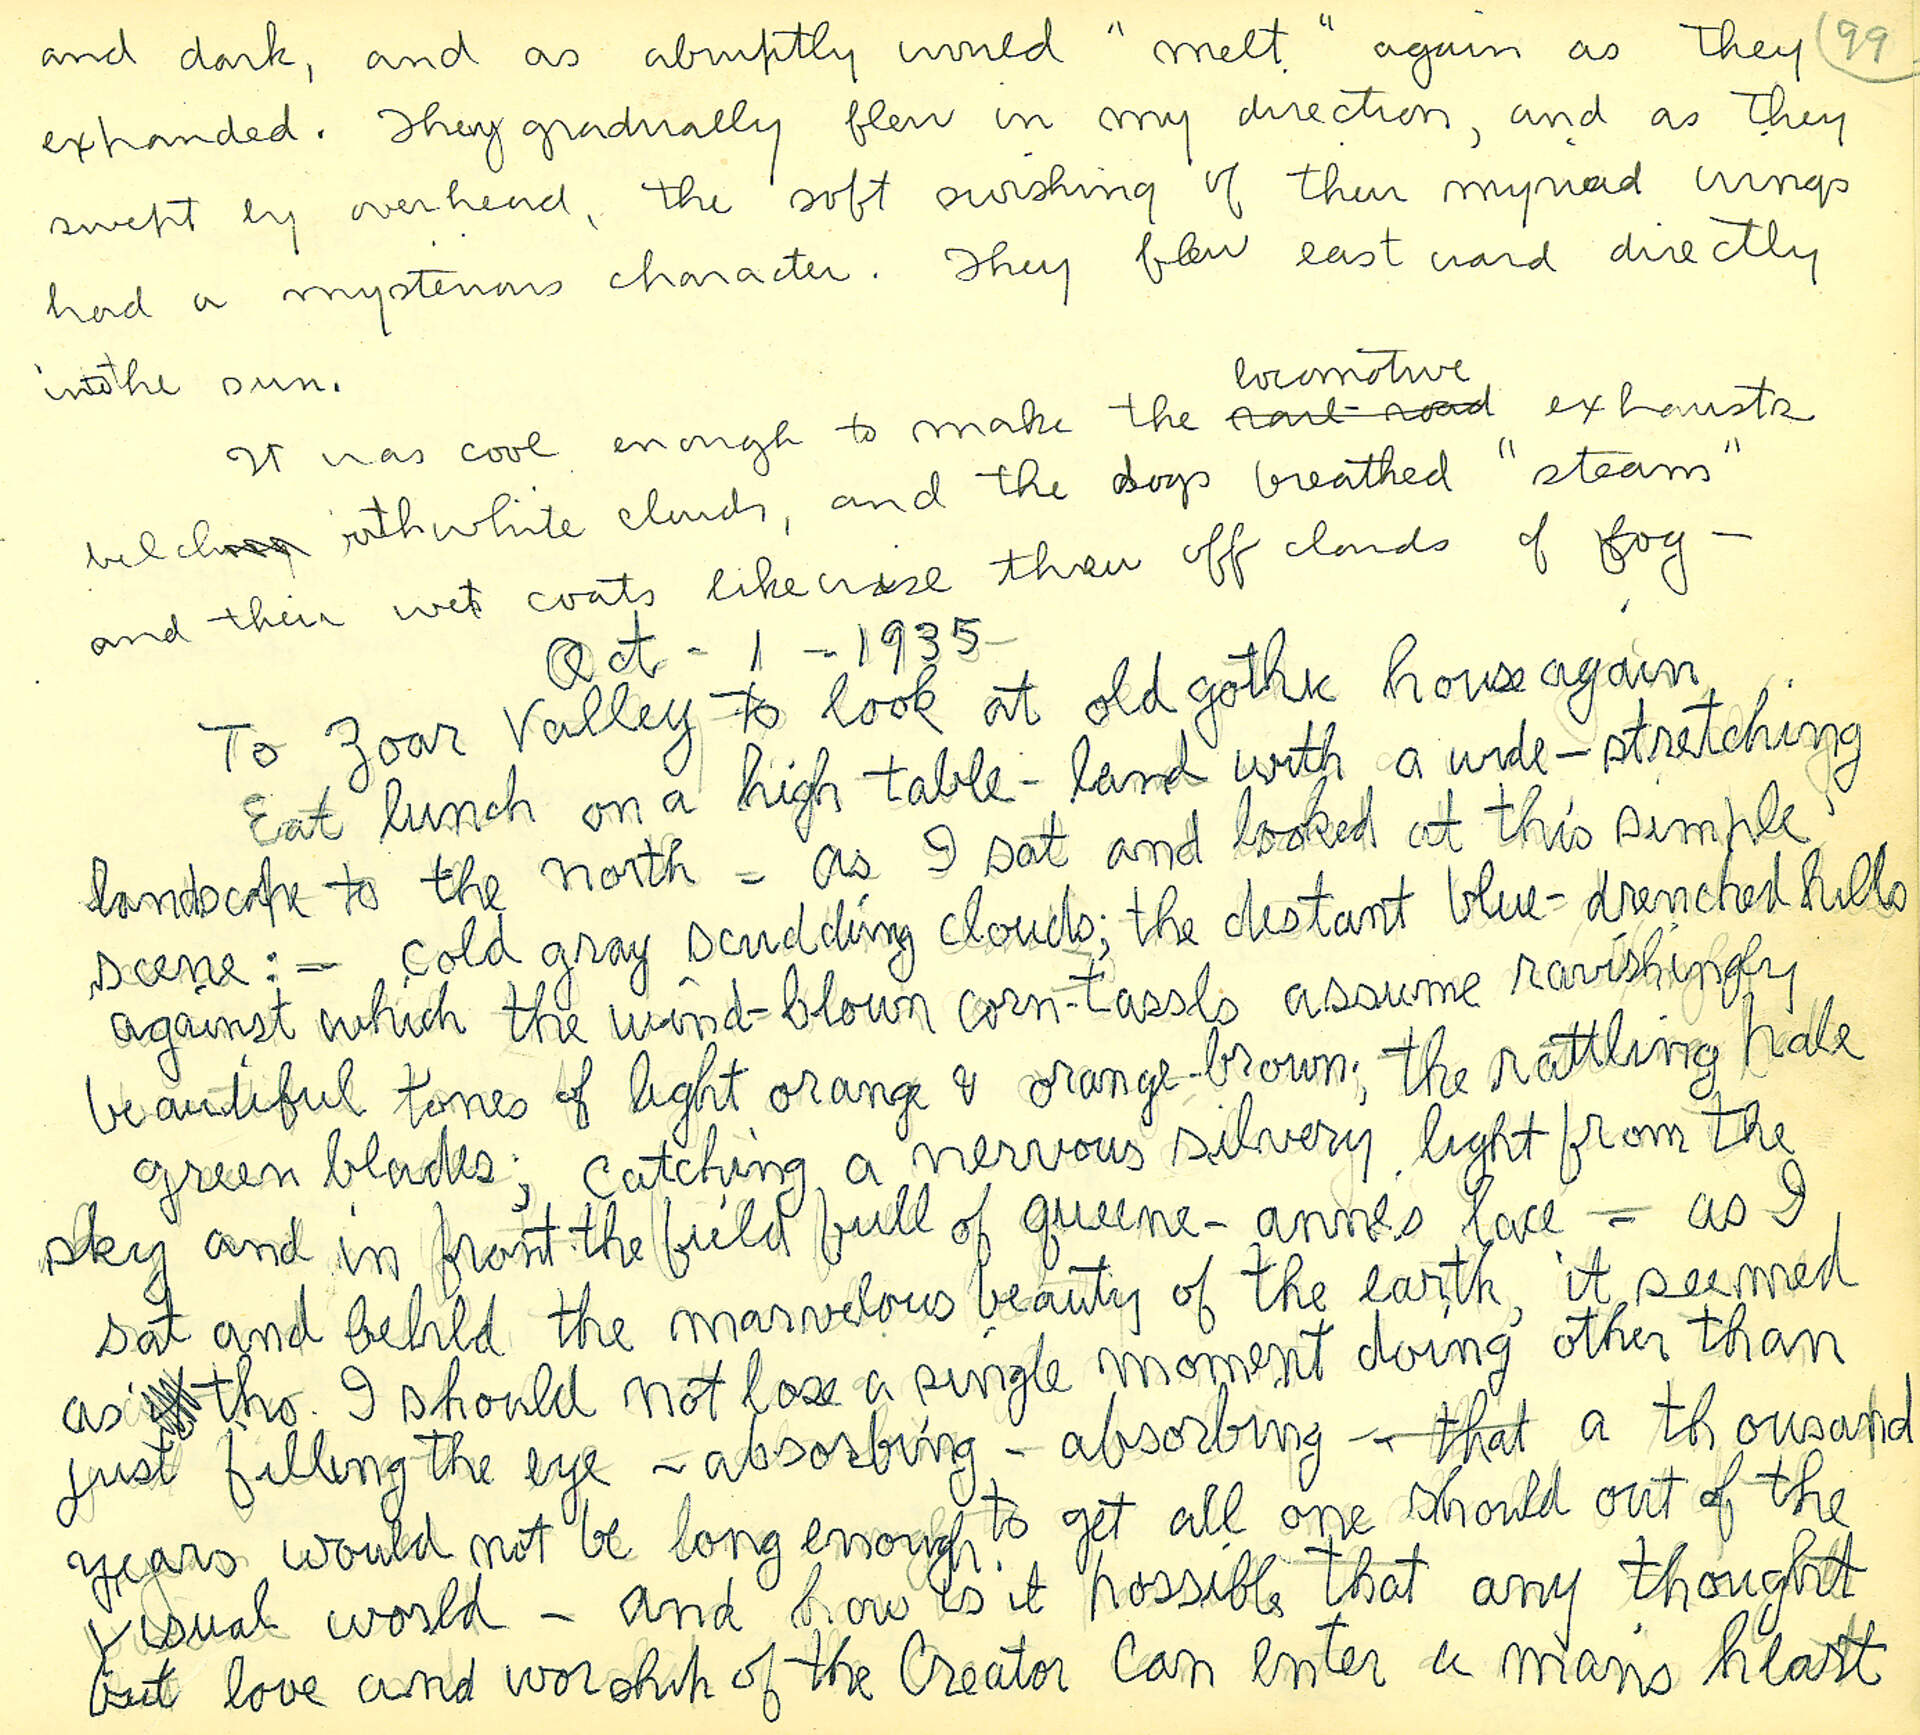 and dark, and as abruptly would "melt" again as they 99
expanded. They gradually flew in my direction, and as they
swept by overhead, the soft swishing of their myriad wings
had a mysterious character. They flew eastward directly
into the sun.
locomotive
It was cool enough to make the rail-road exhausts
belch forth white clouds, and the dogs breathed "steam"
and their wet coats likewise threw off clouds of fog –
Oct - 1 - 1935
To Zoar Valley to look at old gothic house again
Eat lunch on a high table-land with a wide-stretching
landscape to the north – as I sat and looked at this simple
scene: – cold gray scudding clouds; the distant blue-drenched hills
against which the wind-blown corn-tassls assume ravishingly
beautiful tones of light orange & orange-brown; the rattling pale
green blades; catching a nervous silvery light from the
sky and in front the field full of queene-anne's lace – as I
sat and behild the marvelous beauty of the earth, it seemed
as tho. I should not lose a single moment doing other than
just filling the eye – absorbing – absorbing – that a thousand
years would not be long enough to get all one should out of the
visual world – and how is it possible that any thought
but love and worship of the Creator can enter a man's heart